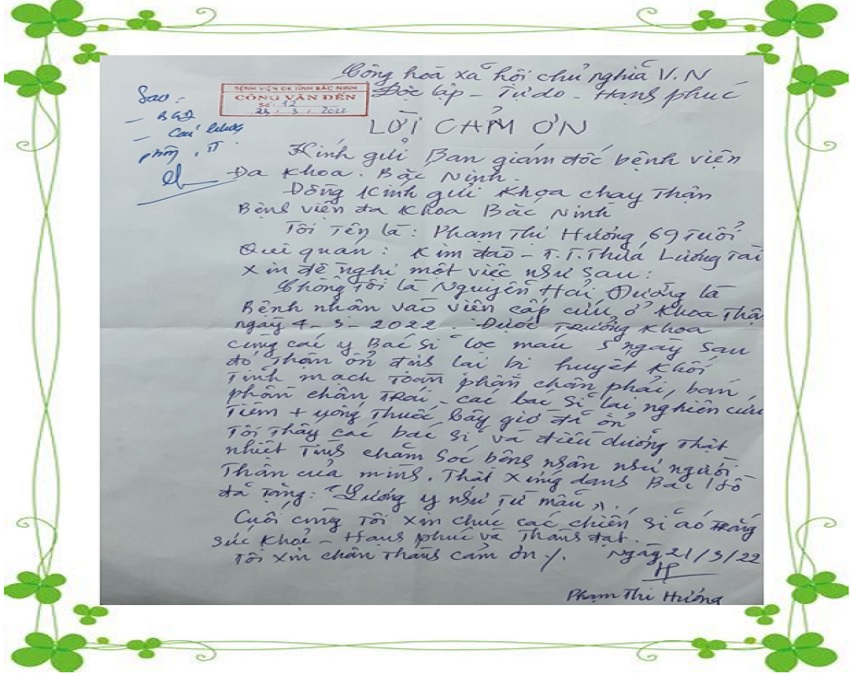 Cộng hoà xã hội chủ nghĩa V.N
Độc lập - Tự do - Hạnh phúc
BỆNH VIỆN ĐK TỈNH BẮC NINH
CÔNG VĂN ĐẾN
Số: 12
Sao:
- BGĐ
phòng
LỜI CẢM ƠN
Kính gửi Ban giám đốc bệnh viện
Đa Khoa. Bắc Ninh.
Đồng Kính gửi Khoa chạy Thận
Bệnh viện đa Khoa Bắc Ninh
Tôi Tên là: Phạm Thị Hương, 69 Tuổi
Quê quán: Kim đào - T.T. Thứa Lương Tài
Xin đề nghị một việc như sau:
Chồng Tôi là Nguyễn Hải Đường là
Bệnh nhân vào viện cấp cứu ở Khoa Thận
ngày 4-3-2022. Được Trưởng Khoa
cùng các y Bác sĩ lọc máu 5 ngày sau
đó Thận ổn định lại bị huyết Khối
Tĩnh mạch Toàn phần chân phải, bán
phần chân Trái. các bác sĩ lại nghiên cứu
Tiêm + uống Thuốc bây giờ đã ổn
Tôi Thấy các bác sĩ và điều dưỡng Thật
nhiệt Tình chăm sóc bệnh nhân như người
Thân của mình. Thật xứng danh Bác Hồ
đã Tặng: "Lương y như Từ mẫu".
Cuối cùng Tôi xin chúc các chiến sĩ áo Trắng
sức Khoẻ - Hạnh phúc và Thành đạt.
Tôi xin chân Thành cảm ơn ./. Ngày 21/3/22
Phạm Thị Hương